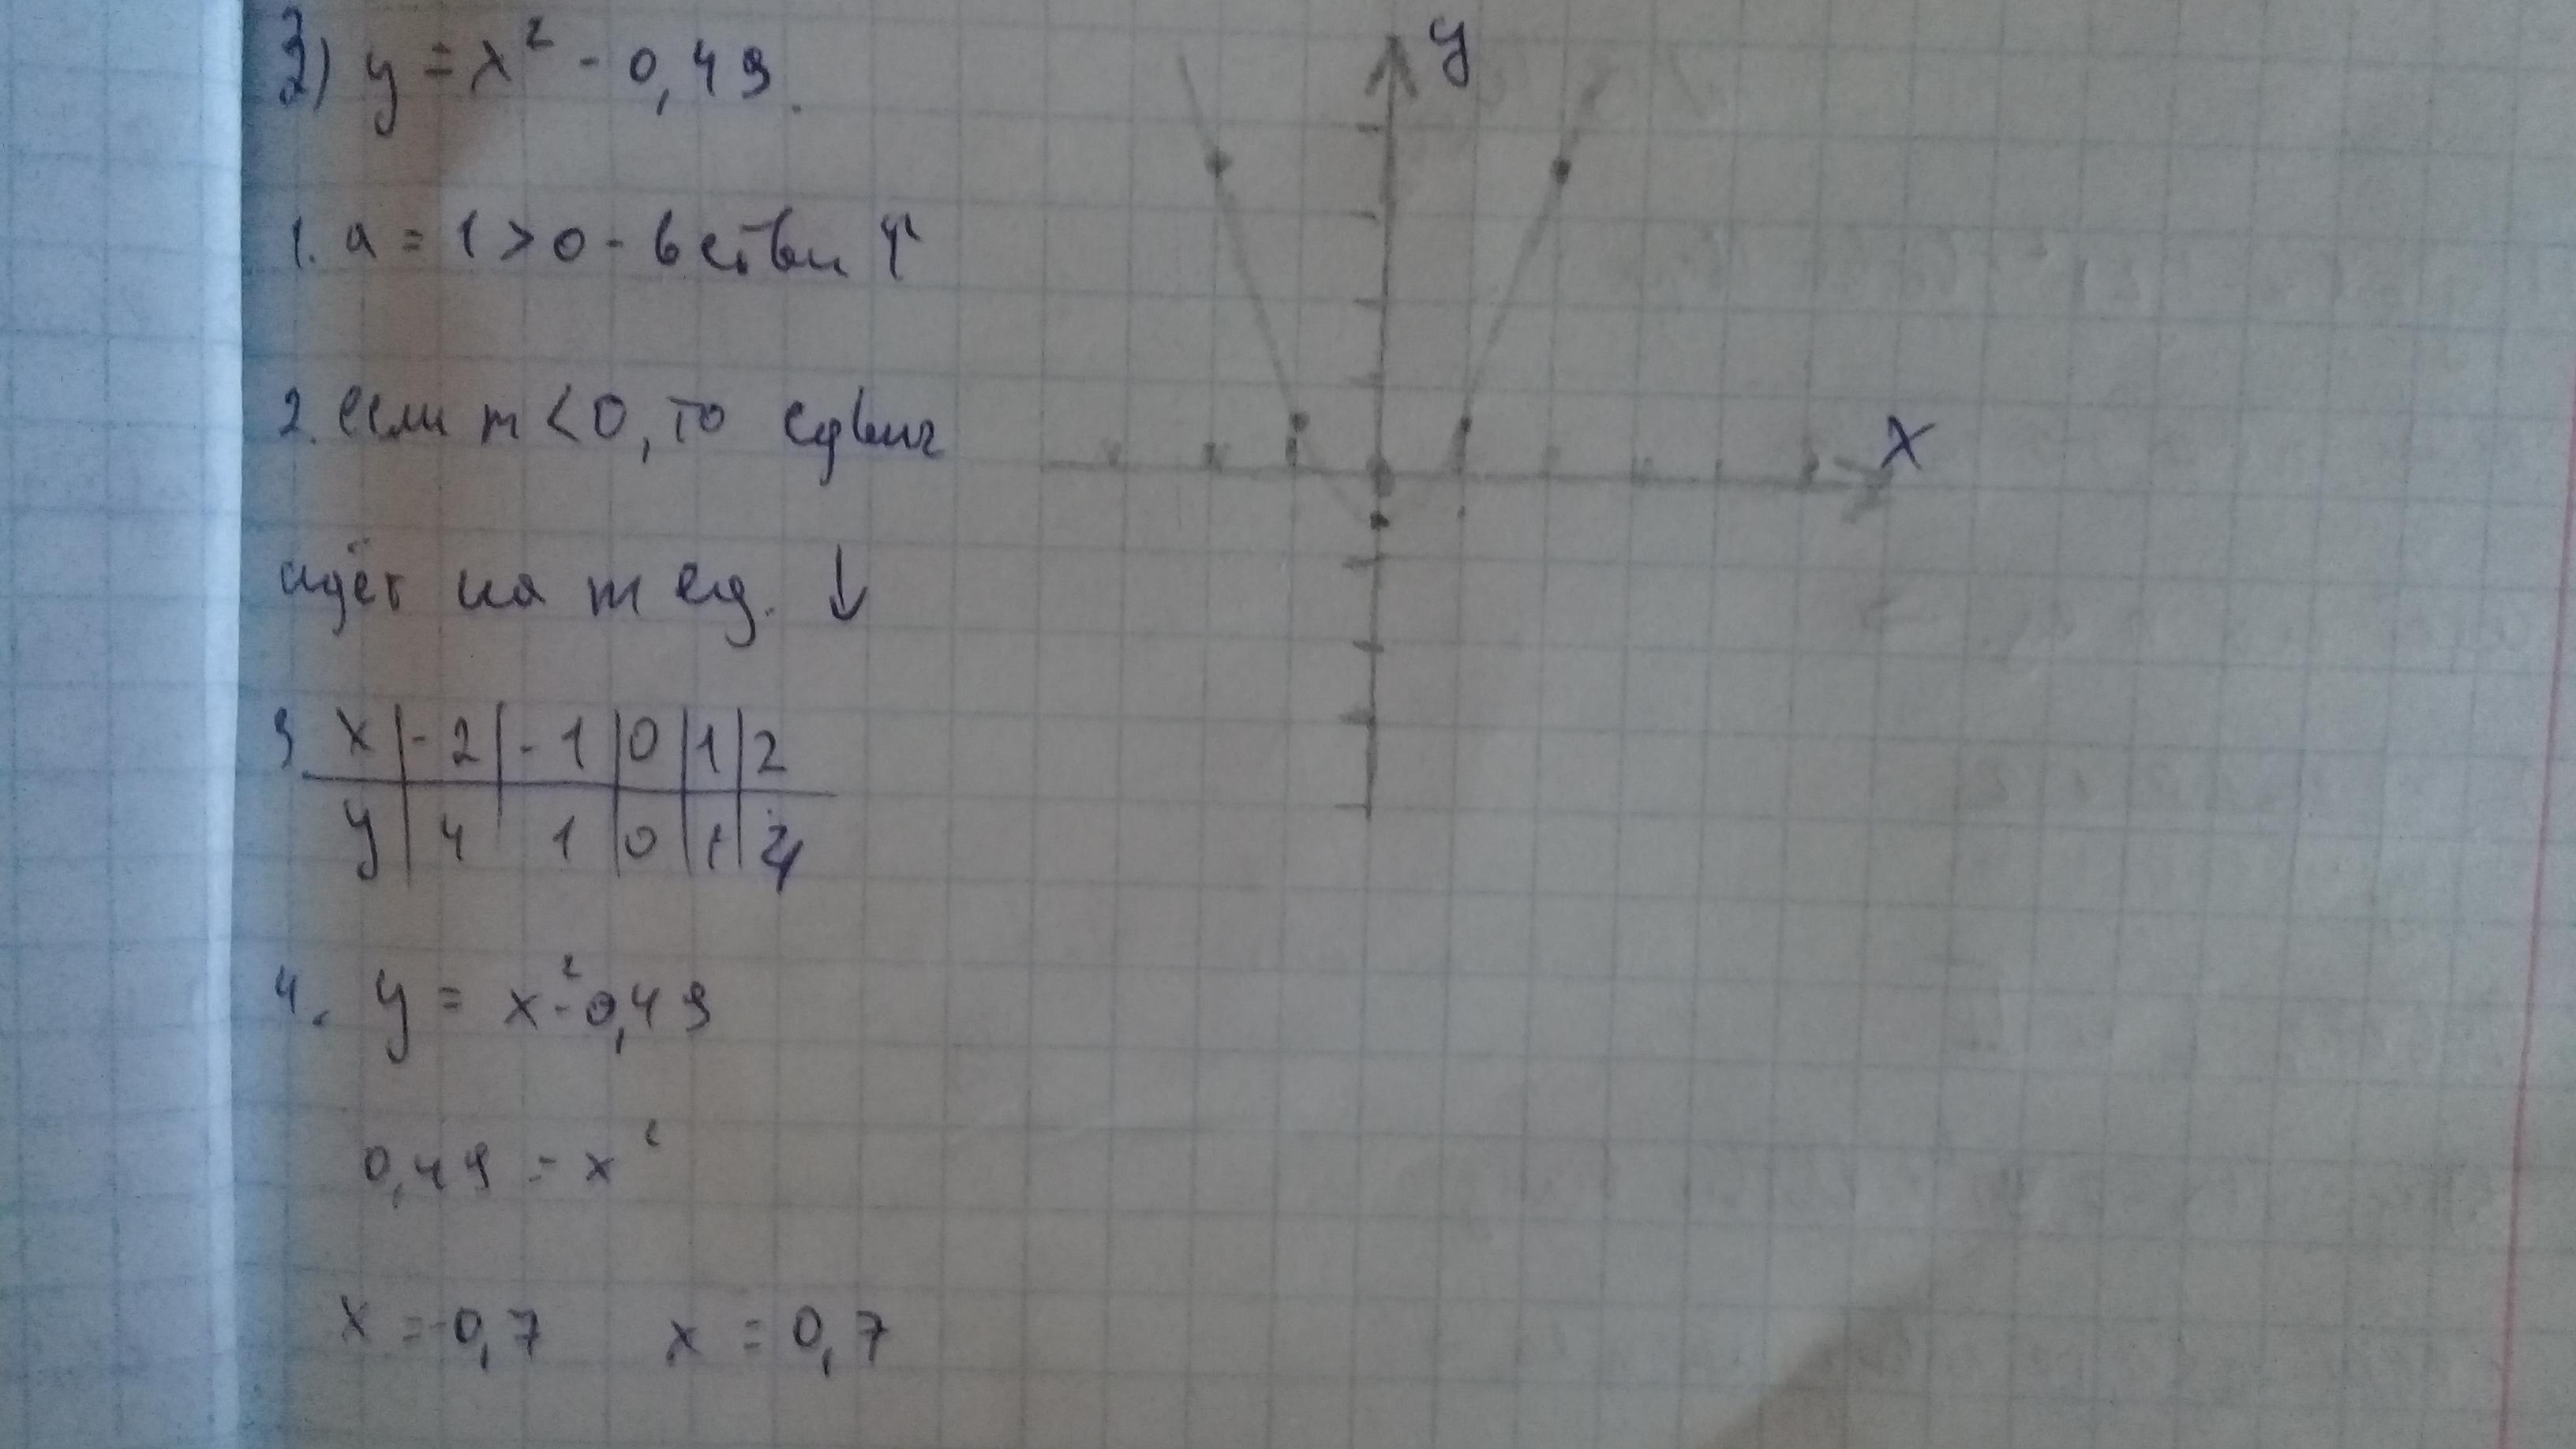 3) y = x² - 0,49.
y
1. a = 1 > 0 - ветви ↑
2. если m < 0, то сдвиг
x
идёт на m ед. ↓
3 x | -2 | -1 | 0 | 1 | 2
y | 4 | 1 | 0 | 1 | 4
4. y = x² - 0,49
0,49 = x²
x = -0,7 x = 0,7